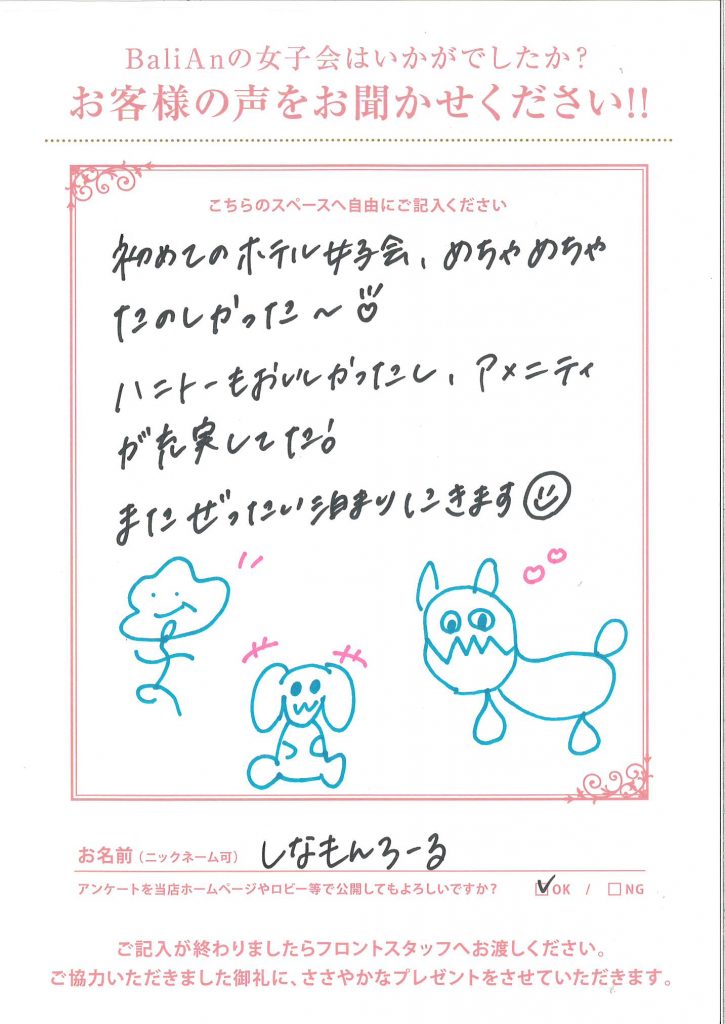 BaliAnの女子会はいかがでしたか?
お客様の声をお聞かせください!!
こちらのスペースへ自由にご記入ください
初めてのホテル女子会、めちゃめちゃ
たのしかった〜
ハニトーもおいしかったし、アメニティ
が充実してた!
またぜったい泊まりにきます
お名前(ニックネーム可) しなもんろーる
アンケートを当店ホームページやロビー等で公開してもよろしいですか? ☑OK / □NG
ご記入が終わりましたらフロントスタッフへお渡しください。
ご協力いただきました御礼に、ささやかなプレゼントをさせていただきます。